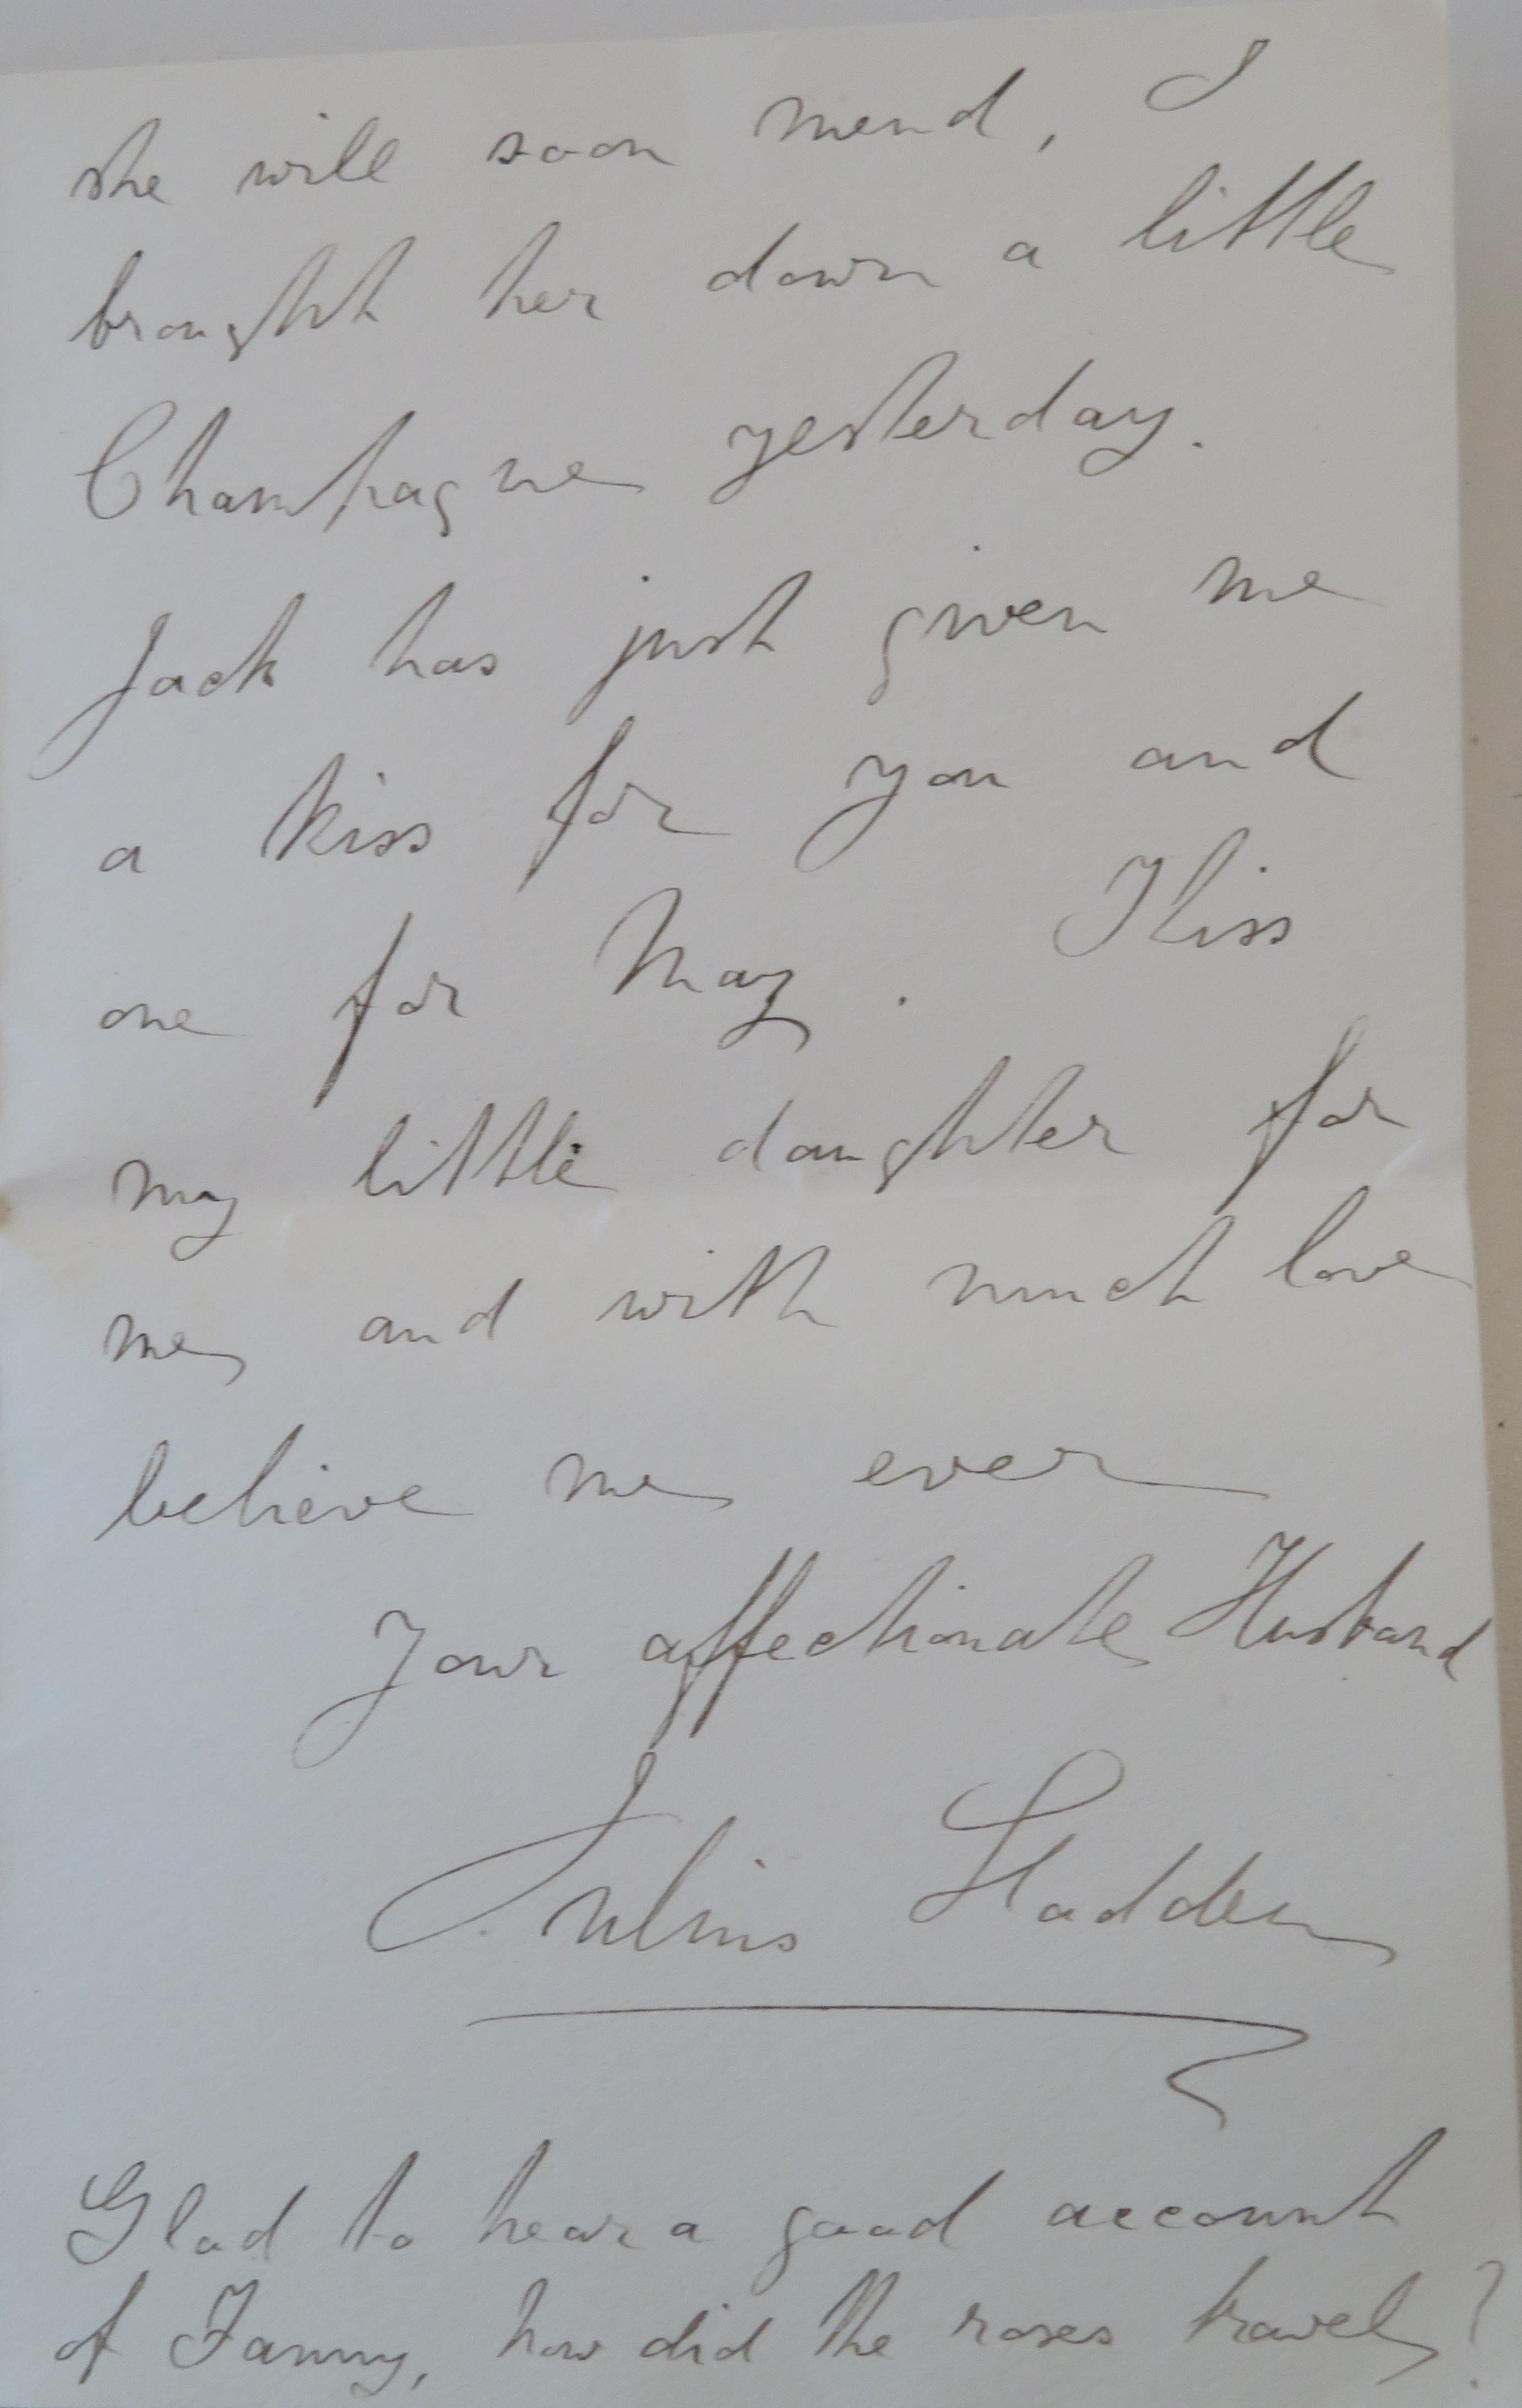 she will soon mend, I
brought her down a little
Champagne yesterday.
Jack has just given me
a kiss for you and
one for May. Kiss
my little daughter for
me and with much love
believe me ever
Your affectionate Husband
Julius Hadden
Glad to hear a good account
of Fanny, how did the roses travel?